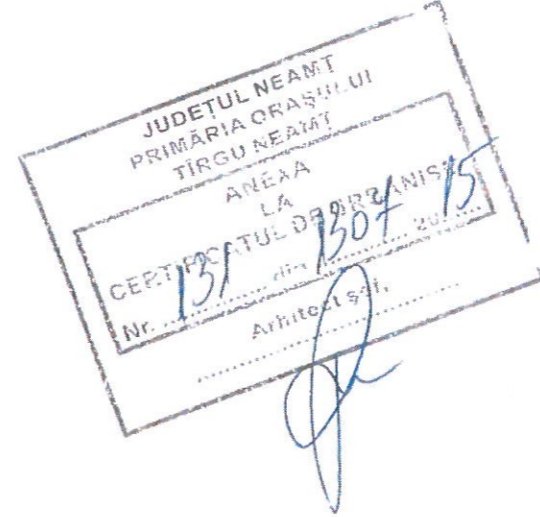 JUDEȚUL NEAMȚ
PRIMĂRIA ORAȘULUI
TÎRGU NEAMȚ
ANEXA
LA
CERTIFICATUL DE URBANISM
Nr. 131 din 1307 2015
Arhitect șef,